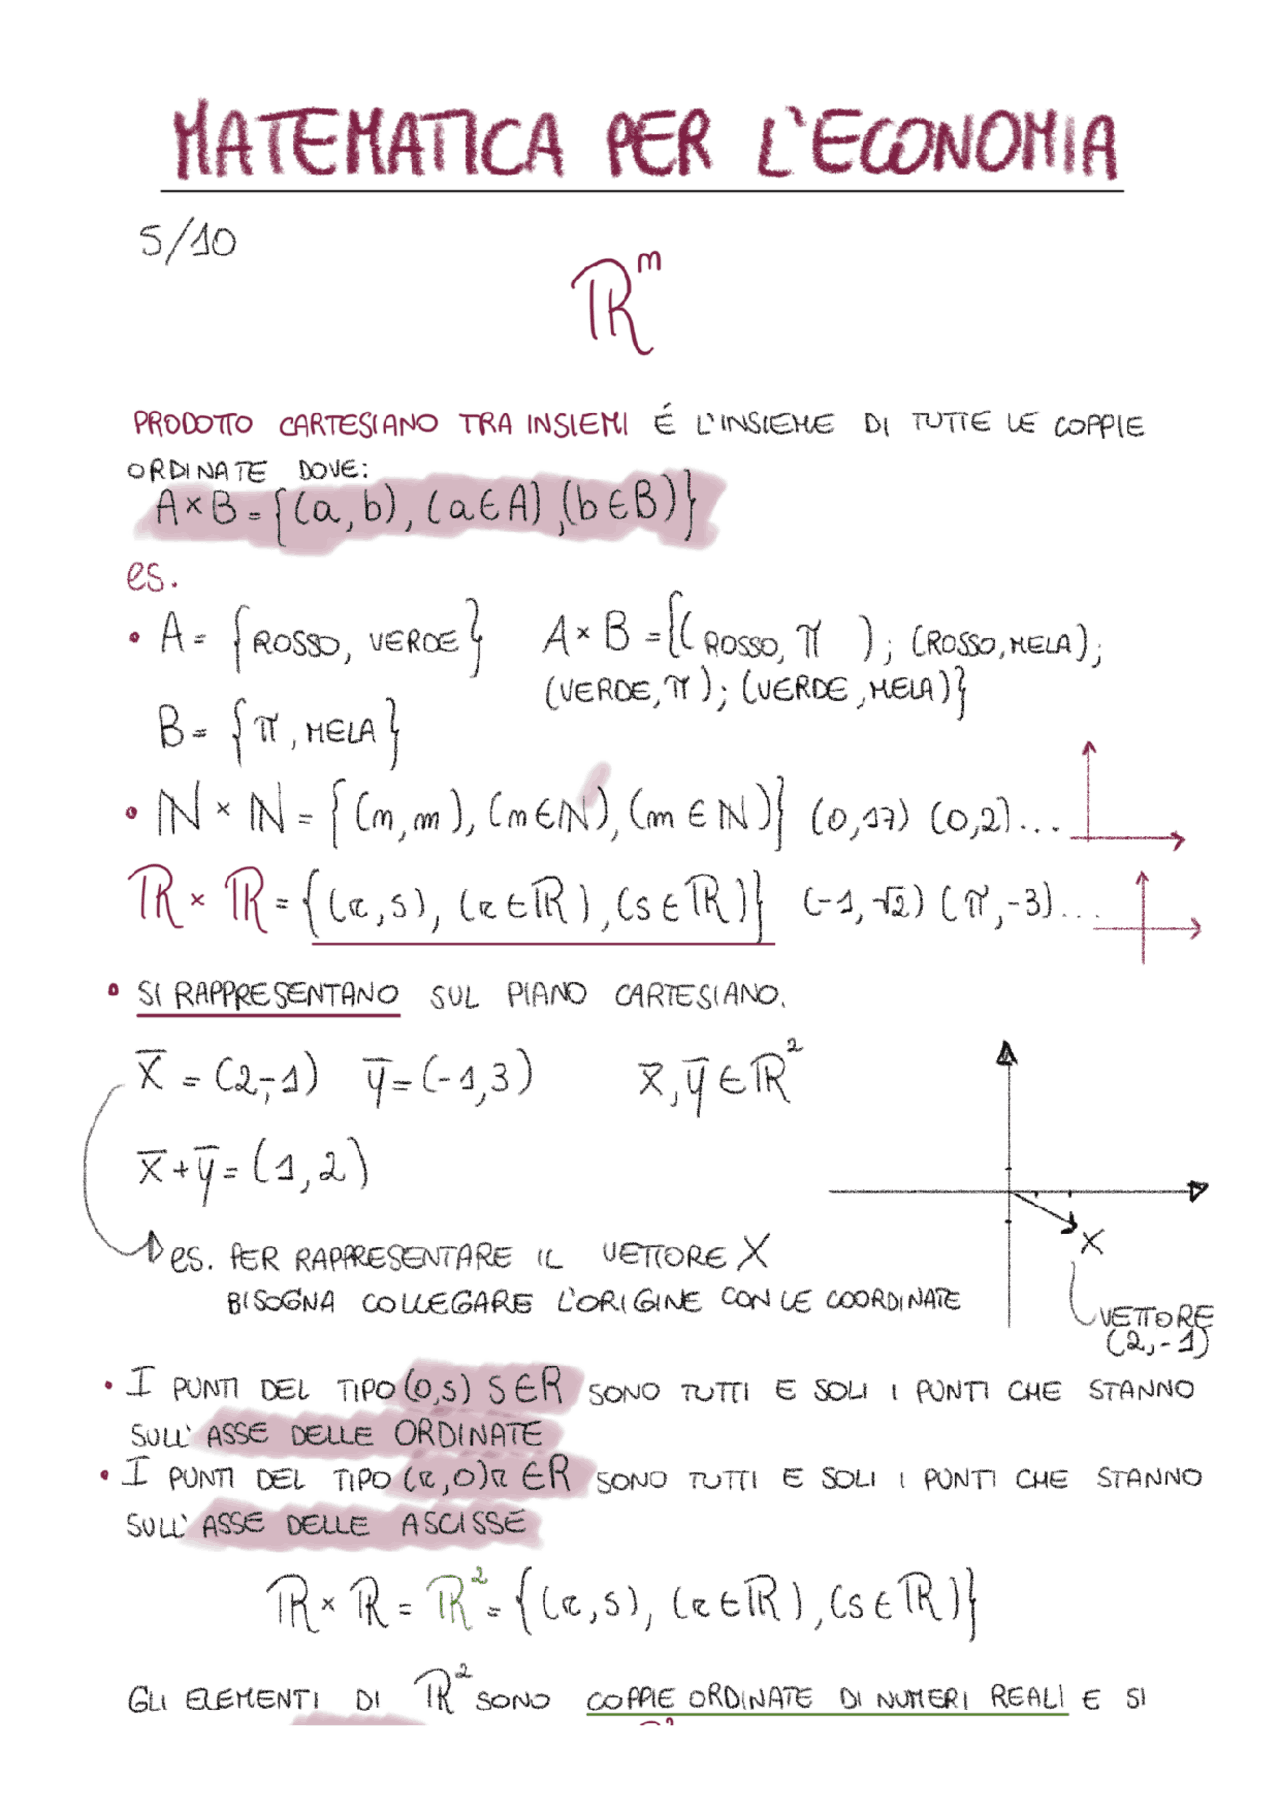 MATEMATICA PER L'ECONOMIA
5/10
ℝᵐ
PRODOTTO CARTESIANO TRA INSIEMI É L'INSIEME DI TUTTE LE COPPIE
ORDINATE DOVE:
A×B={(a,b),(a∈A),(b∈B)}
es.
• A= {ROSSO, VERDE} A×B={(ROSSO, π ); (ROSSO,MELA);
(VERDE,π); (VERDE,MELA)}
B= {π, MELA}
• ℕ × ℕ = {(m,m), (m∈ℕ), (m∈ℕ)} (0,17) (0,2)...
ℝ × ℝ = {(r,s), (r∈ℝ), (s∈ℝ)} (-1,-√2) (π,-3)...
• SI RAPPRESENTANO SUL PIANO CARTESIANO.
x̅ = (2,-1) y̅=(-1,3) x̅,y̅∈ℝ²
x̅+y̅=(1,2)
es. PER RAPPRESENTARE IL VETTORE X
BISOGNA COLLEGARE L'ORIGINE CON LE COORDINATE
X
VETTORE
(2,-1)
• I PUNTI DEL TIPO (0,s) S∈R SONO TUTTI E SOLI I PUNTI CHE STANNO
SULL' ASSE DELLE ORDINATE
• I PUNTI DEL TIPO (r,0) r∈R SONO TUTTI E SOLI I PUNTI CHE STANNO
SULL' ASSE DELLE ASCISSE
ℝ × ℝ = ℝ² = {(r,s), (r∈ℝ), (s∈ℝ)}
GLI ELEMENTI DI ℝ² SONO COPPIE ORDINATE DI NUMERI REALI E SI